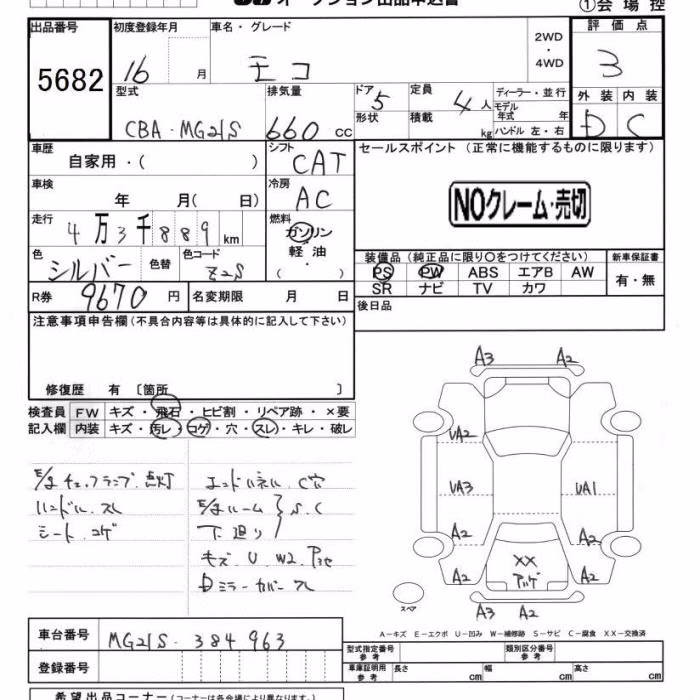 オークション出品申込書 ①会場控
出品番号 初度登録年月 車名・グレード 2WD・4WD 評価点
5682 16 月 モコ 3
型式 排気量 ドア 5 定員 4人 ディーラー・並行 外装 内装
CBA・MG21S 660cc 形状 積載 kg モデル年式 年 D C
ハンドル 左・右
車歴 シフト セールスポイント (正常に機能するものに限ります)
自家用・( ) CAT
車検 冷房
年 月( 日) AC NOクレーム・売切
走行 燃料
4万3千889km ガソリン
色 色替 色コード 軽油 装備品(純正品に限り〇をつけてください) 新車保証書
シルバー Z2S ( ) PS PW ABS エアB AW 有・無
SR ナビ TV カワ
R券 9670円 名変期限 月 日 後日品
注意事項申告欄(不具合内容等は具体的に記入して下さい)
修復歴 有 〔箇所 〕
検査員 FW キズ・飛石・ヒビ割・リペア跡・×要
記入欄 内装 キズ・汚レ・コゲ・穴・スレ・キレ・破レ
A3 A2
UA2
UA3 UA1
A2 A2
A2 ×× A2
アッゲ
スペア
A3 A2
E/gチェックランプ点灯 エンドパネル C穴
ハンドル スレ E/gルーム S.C
シート コゲ 下廻り
キズ U W2
Dミラーカバー スレ
A－キズ E－エクボ U－凹み W－補修跡 S－サビ C－腐食 XX－交換済
車台番号 MG21S-384963
型式指定番号 参考 類別区分番号 参考
登録番号 車庫証明用 参考 長さ cm 幅 cm 高さ cm
希望出品コーナー(コーナー名は各会場により異なります。)